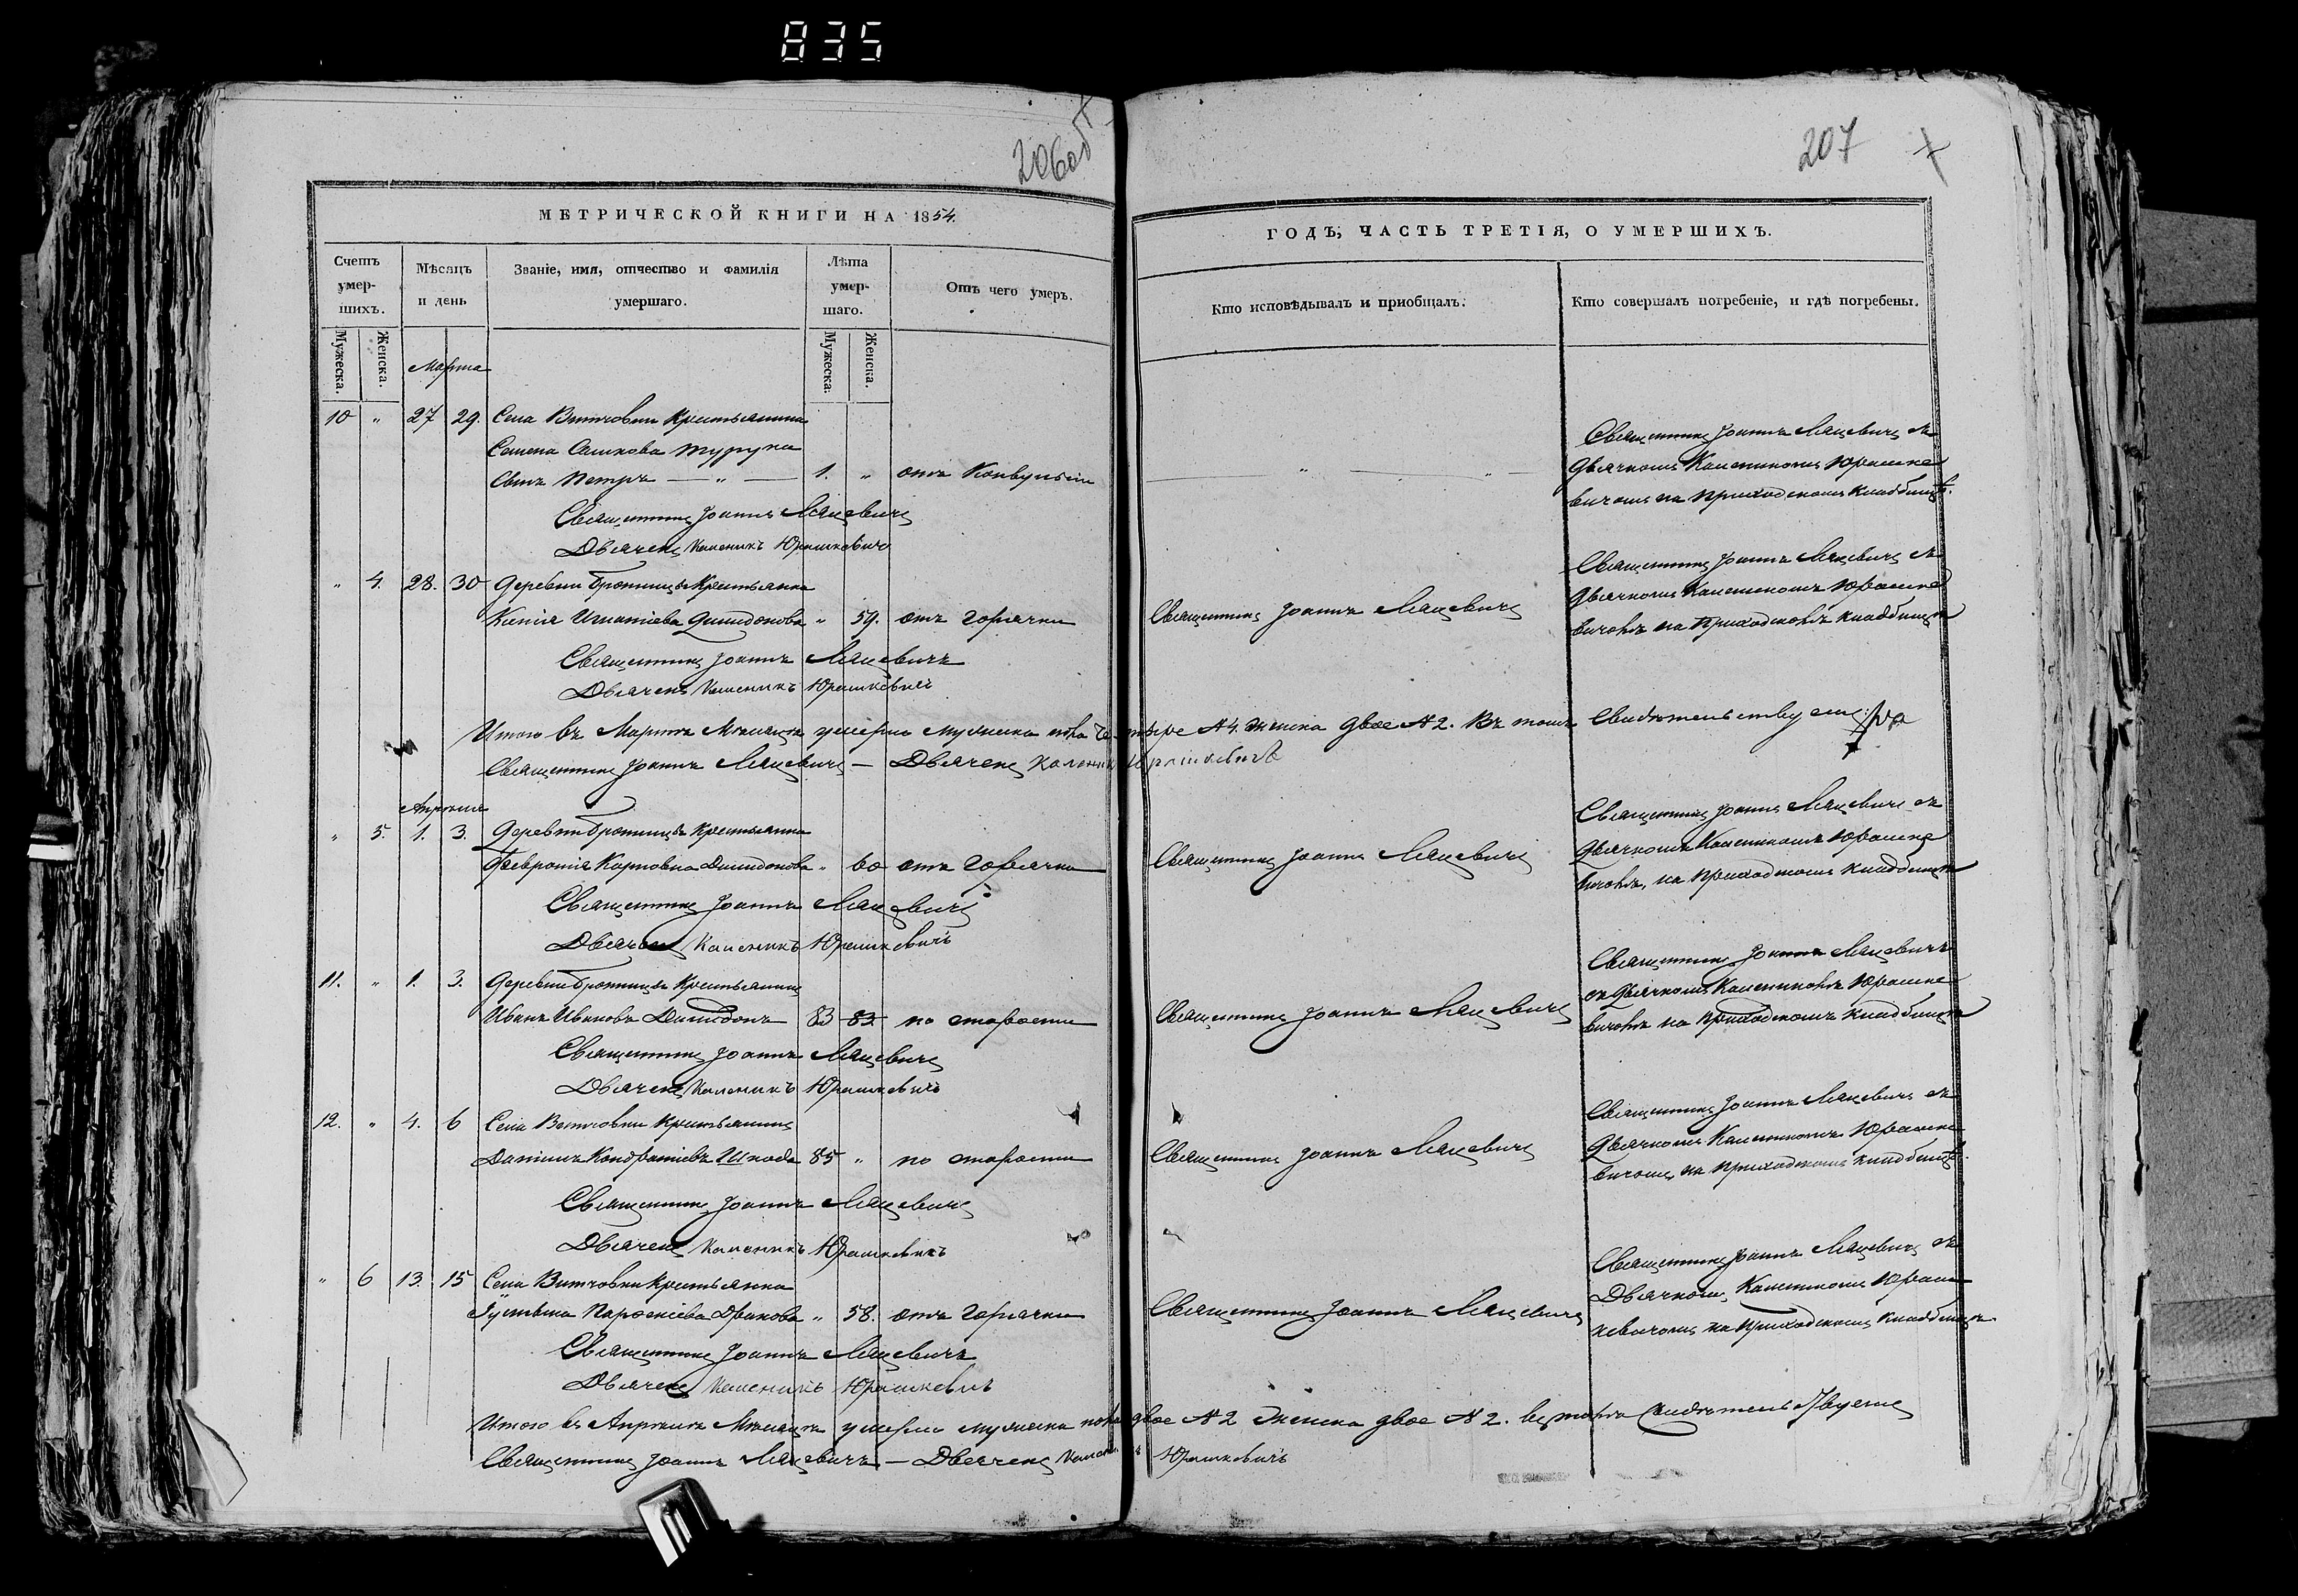 835
206об
207
МЕТРИЧЕСКОЙ КНИГИ НА 1854.
Счетъ умершихъ.
Мѣсяцъ и день
Званіе, имя, отчество и фамилія умершаго.
Лѣта умершаго.
Отъ чего умеръ.
Мужеска. Женска.
Мужеска. Женска.
Марта
10 " 27 29. Села Витчовки Крестьянина
Семена
Сынъ Петръ — " — 1. " отъ Конвульсіи
Священникъ Іоаннъ Ляцевичъ
Дьячекъ Каленикъ Юрашкевичъ
" 4. 28. 30 Деревни Бротницы Крестьянка
Ксенія Игнатіева Димидокова " 59. отъ горячки
Священникъ Іоаннъ Ляцевичъ
Дьячекъ Каленикъ Юрашкевичъ
Итого въ Мартѣ Мѣсяцѣ умерло мужеска пола четыре №4. Женска двое №2. Въ томъ свидѣтельствуемъ:
Священникъ Іоаннъ Ляцевичъ — Дьячекъ Каленикъ Юрашкевичъ
Апрѣля
" 5. 1. 3. Деревни Бротницы Крестьянка
Февронія Карповна Димидокова " 60 отъ горячки
Священникъ Іоаннъ Ляцевичъ
Дьячекъ Каленикъ Юрашкевичъ
11. " 1. 3. Деревни Бротницы Крестьянинъ
Иванъ Ивановъ Димидокъ 83 83 по старости
Священникъ Іоаннъ Ляцевичъ
Дьячекъ Каленикъ Юрашкевичъ
12. " 4. 6 Села Витчовки Крестьянинъ
Даніилъ Кондратіевъ Шкода 85 " по старости
Священникъ Іоаннъ Ляцевичъ
Дьячекъ Каленикъ Юрашкевичъ
" 6 13. 15 Села Витчовки Крестьянка
" 58. отъ горячки
Священникъ Іоаннъ Ляцевичъ
Дьячекъ Каленикъ Юрашкевичъ
Итого въ Апрѣлѣ Мѣсяцѣ умерло мужеска пола двое №2 Женска двое №2. въ томъ свидѣтельствуемъ
Священникъ Іоаннъ Ляцевичъ — Дьячекъ Каленикъ Юрашкевичъ
ГОДЪ, ЧАСТЬ ТРЕТІЯ, О УМЕРШИХЪ.
Кто исповѣдывалъ и приобщалъ.
Кто совершалъ погребеніе, и гдѣ погребены.
Священникъ Іоаннъ Ляцевичъ съ
Дьячкомъ Каленикомъ Юрашке
вичомъ на приходскомъ кладбищѣ.
Священникъ Іоаннъ Ляцевичъ
Священникъ Іоаннъ Ляцевичъ съ
Дьячкомъ Каленикомъ Юрашке
вичомъ на приходскомъ кладбищѣ
Священникъ Іоаннъ Ляцевичъ
Священникъ Іоаннъ Ляцевичъ съ
Дьячкомъ Каленикомъ Юрашке
вичомъ, на приходскомъ кладбищѣ
Священникъ Іоаннъ Ляцевичъ
Священникъ Іоаннъ Ляцевичъ
съ Дьячкомъ Каленикомъ Юрашке
вичомъ на приходскомъ кладбищѣ
Священникъ Іоаннъ Ляцевичъ
Священникъ Іоаннъ Ляцевичъ съ
Дьячкомъ Каленикомъ Юрашке
вичомъ на приходскомъ кладбищѣ.
Священникъ Іоаннъ Ляцевичъ
Священникъ Іоаннъ Ляцевичъ съ
Дьячкомъ Каленикомъ Юраш
кевичомъ на приходскомъ кладбищѣ